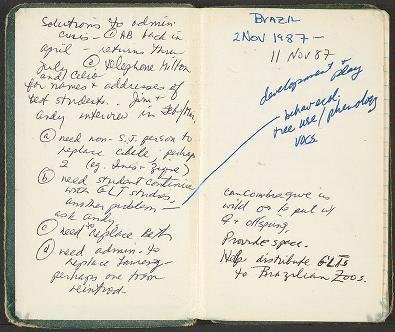 Solutions to admin
crisis - ① AB back in
april - returns thru
July ② telephone Milton
and Celio
for names + addresses of
3ed students. Jim +
Andy interview in Feb/Mar.
ⓐ need non-S.J. person to
replace adele, perhaps
2 (eg. Ines + Zique)
ⓑ need student continue
with GLT studies,
another problem -
ask andy
ⓒ need to replace Beth
ⓓ need admin. to
replace
perhaps one from
reintrod.
BRAZIL
2 NOV 1987 -
11 NOV 87
development + play
behavioral:
tree use / phenology
VOCS
can Coimbra give us
wild ♂ to put w/
♀ + offspring.
Provide space.
Help distribute GLTs
to Brazilian Zoos.